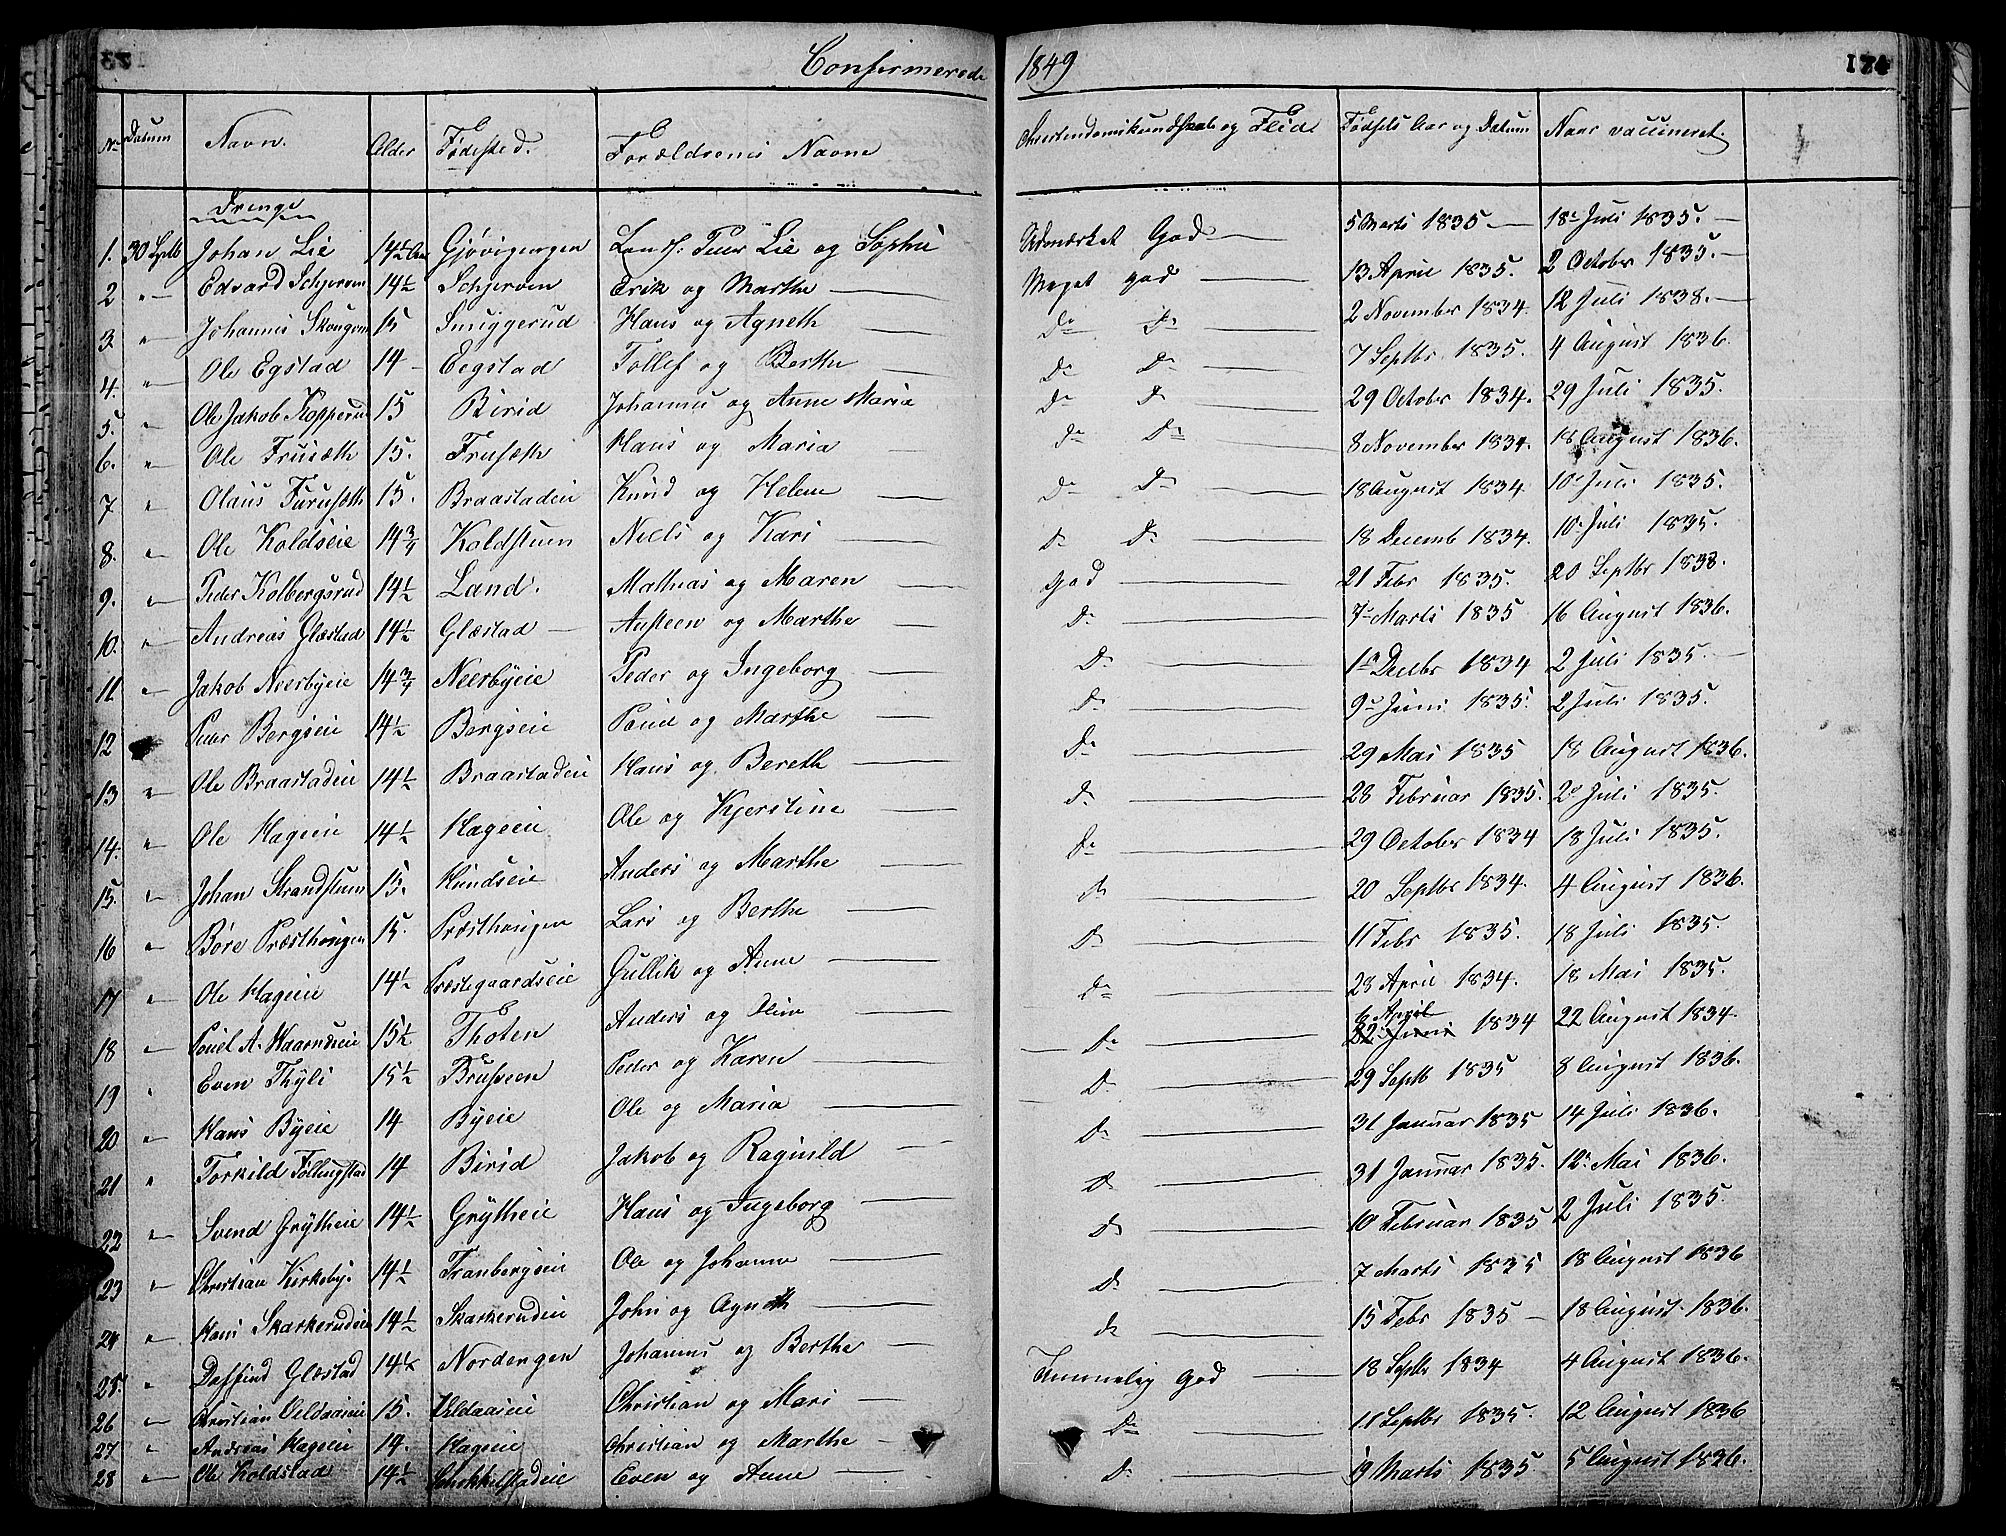 Confirmerede 1849 174
No Datum Navn. Alder Fødested. Forældrenes Navne Christendomskundskab og Flid Fødsels Aar og Datum Naar vaccineret.
Drenge
1. 30 Septb Johan Lie 14½ Aar Gjøvigengen Peder Lie og Sophie Udmærket God 5 Marts 1835 18 Juli 1835.
2 " Edvard Schjerven 14½ Schjerven Erik og Marthe Meget god 13 April 1835. 2 October 1835.
3. " Johannes 15 Smiggerud Hans og Agneth Do Do 2 November 1834. 12 Juli 1838.
4. " Ole Egstad 14 Eegstad Tollef og Berthe Do Do 7 Septbr 1835. 4 August 1836.
5. " Ole Jakob Kopperud 15 Birid Johannes og Anne Maria Do Do 29 October 1834. 29 Juli 1835.
6. " Ole Frusæth 15. Frusæth Hans og Maria Do Do 8 November 1834. 18 August 1836.
7 " Olaus Furusæth 15. Braastadeie Knud og Helene Do Do 18 August 1834 10 Juli 1835.
8. " Ole Koldseie 14¾ Koldstuen Niels og Kari Do Do 18 Decemb 1834. 10 Juli 1835.
9. " Peder Kolbergsrud 14½ Land. Mathias og Maren God 21 Febr 1835. 20 Septbr 1838.
10. " Andreas Glæstad 14½ Glæstad Austeen og Marthe Do 7 Marts 1835 16 August 1836.
11 " Jakob Neerbyeie 14¾ Neerbyeie Peder og Ingeborg Do 1 Decbr 1834 2 Juli 1835.
12 Peder Bergseie 14½ Bergseie Poul og Marthe Do 9 Juni 1835. 2 Juli 1835.
13 " Ole Braastadeie 14½ Braastadeie Hans og Bereth Do 29 Mai 1835 18 August 1836.
14. " Ole Hageeie 14½ Hageeie Ole og Kjerstine Do 28 Februar 1835. 2 Juli 1835.
15. " Johan Strandstuen 15. Hundseie Anders og Marthe Do 29 October 1834 18 Juli 1835.
16 " Børe Præsthaugen 15. Præsthaugen Lars og Berthe Do 20 Septbr 1834. 4 August 1836.
17 " Ole Hageeie 14½ Præstegaardseie Gullik og Anne Do 11 Febr 1835. 18 Juli 1835.
18 " Pouel A. 15½ Thoten Anders og Oline Do 28 April 1834. 18 Mai 1835.
19 " Even Thyli 15½ Bruseen Peder og Karen Do 6 April 22 Juni 1834 22 August 1834.
20 " Hans Byeie 14 Byeie Ole og Maria Do 29 Septb 1835 8 August 1836.
21 " Torkild Føllingstad 14 Birid Jakob og Ragnild Do 31 Januar 1835 14 Juli 1836.
22 " Svend Grytheie 14½ Grytheie Hans og Ingeborg Do 31 Januar 1835. 12 Mai 1836.
23 " Christian Kirkeby. 14½ Tranbergseie Ole og Johanne Do 10 Februar 1835 2 Juli 1835.
24 " Hans Skarkerudeie 14½ Skarkerudeie John og Agneth Do 7 Marts 1835 18 August 1836
25. " Daffind Glæstad 14½ Nordengen Johannes og Berthe Do 15 Febr 1835 18 August 1836.
26 " Christian Veldaaseie 15. Veldaaseie Christian og Mari Temmelig God 18 Septbr 1834 4 August 1836.
27 " Andreas Hageeie 14. Hageeie Christian og Marthe Do 11 Septbr 1835. 12 August 1836
28 " Ole Koldstad 14½ Even og Anne Do 19 Marts 1835 5 August 1836.